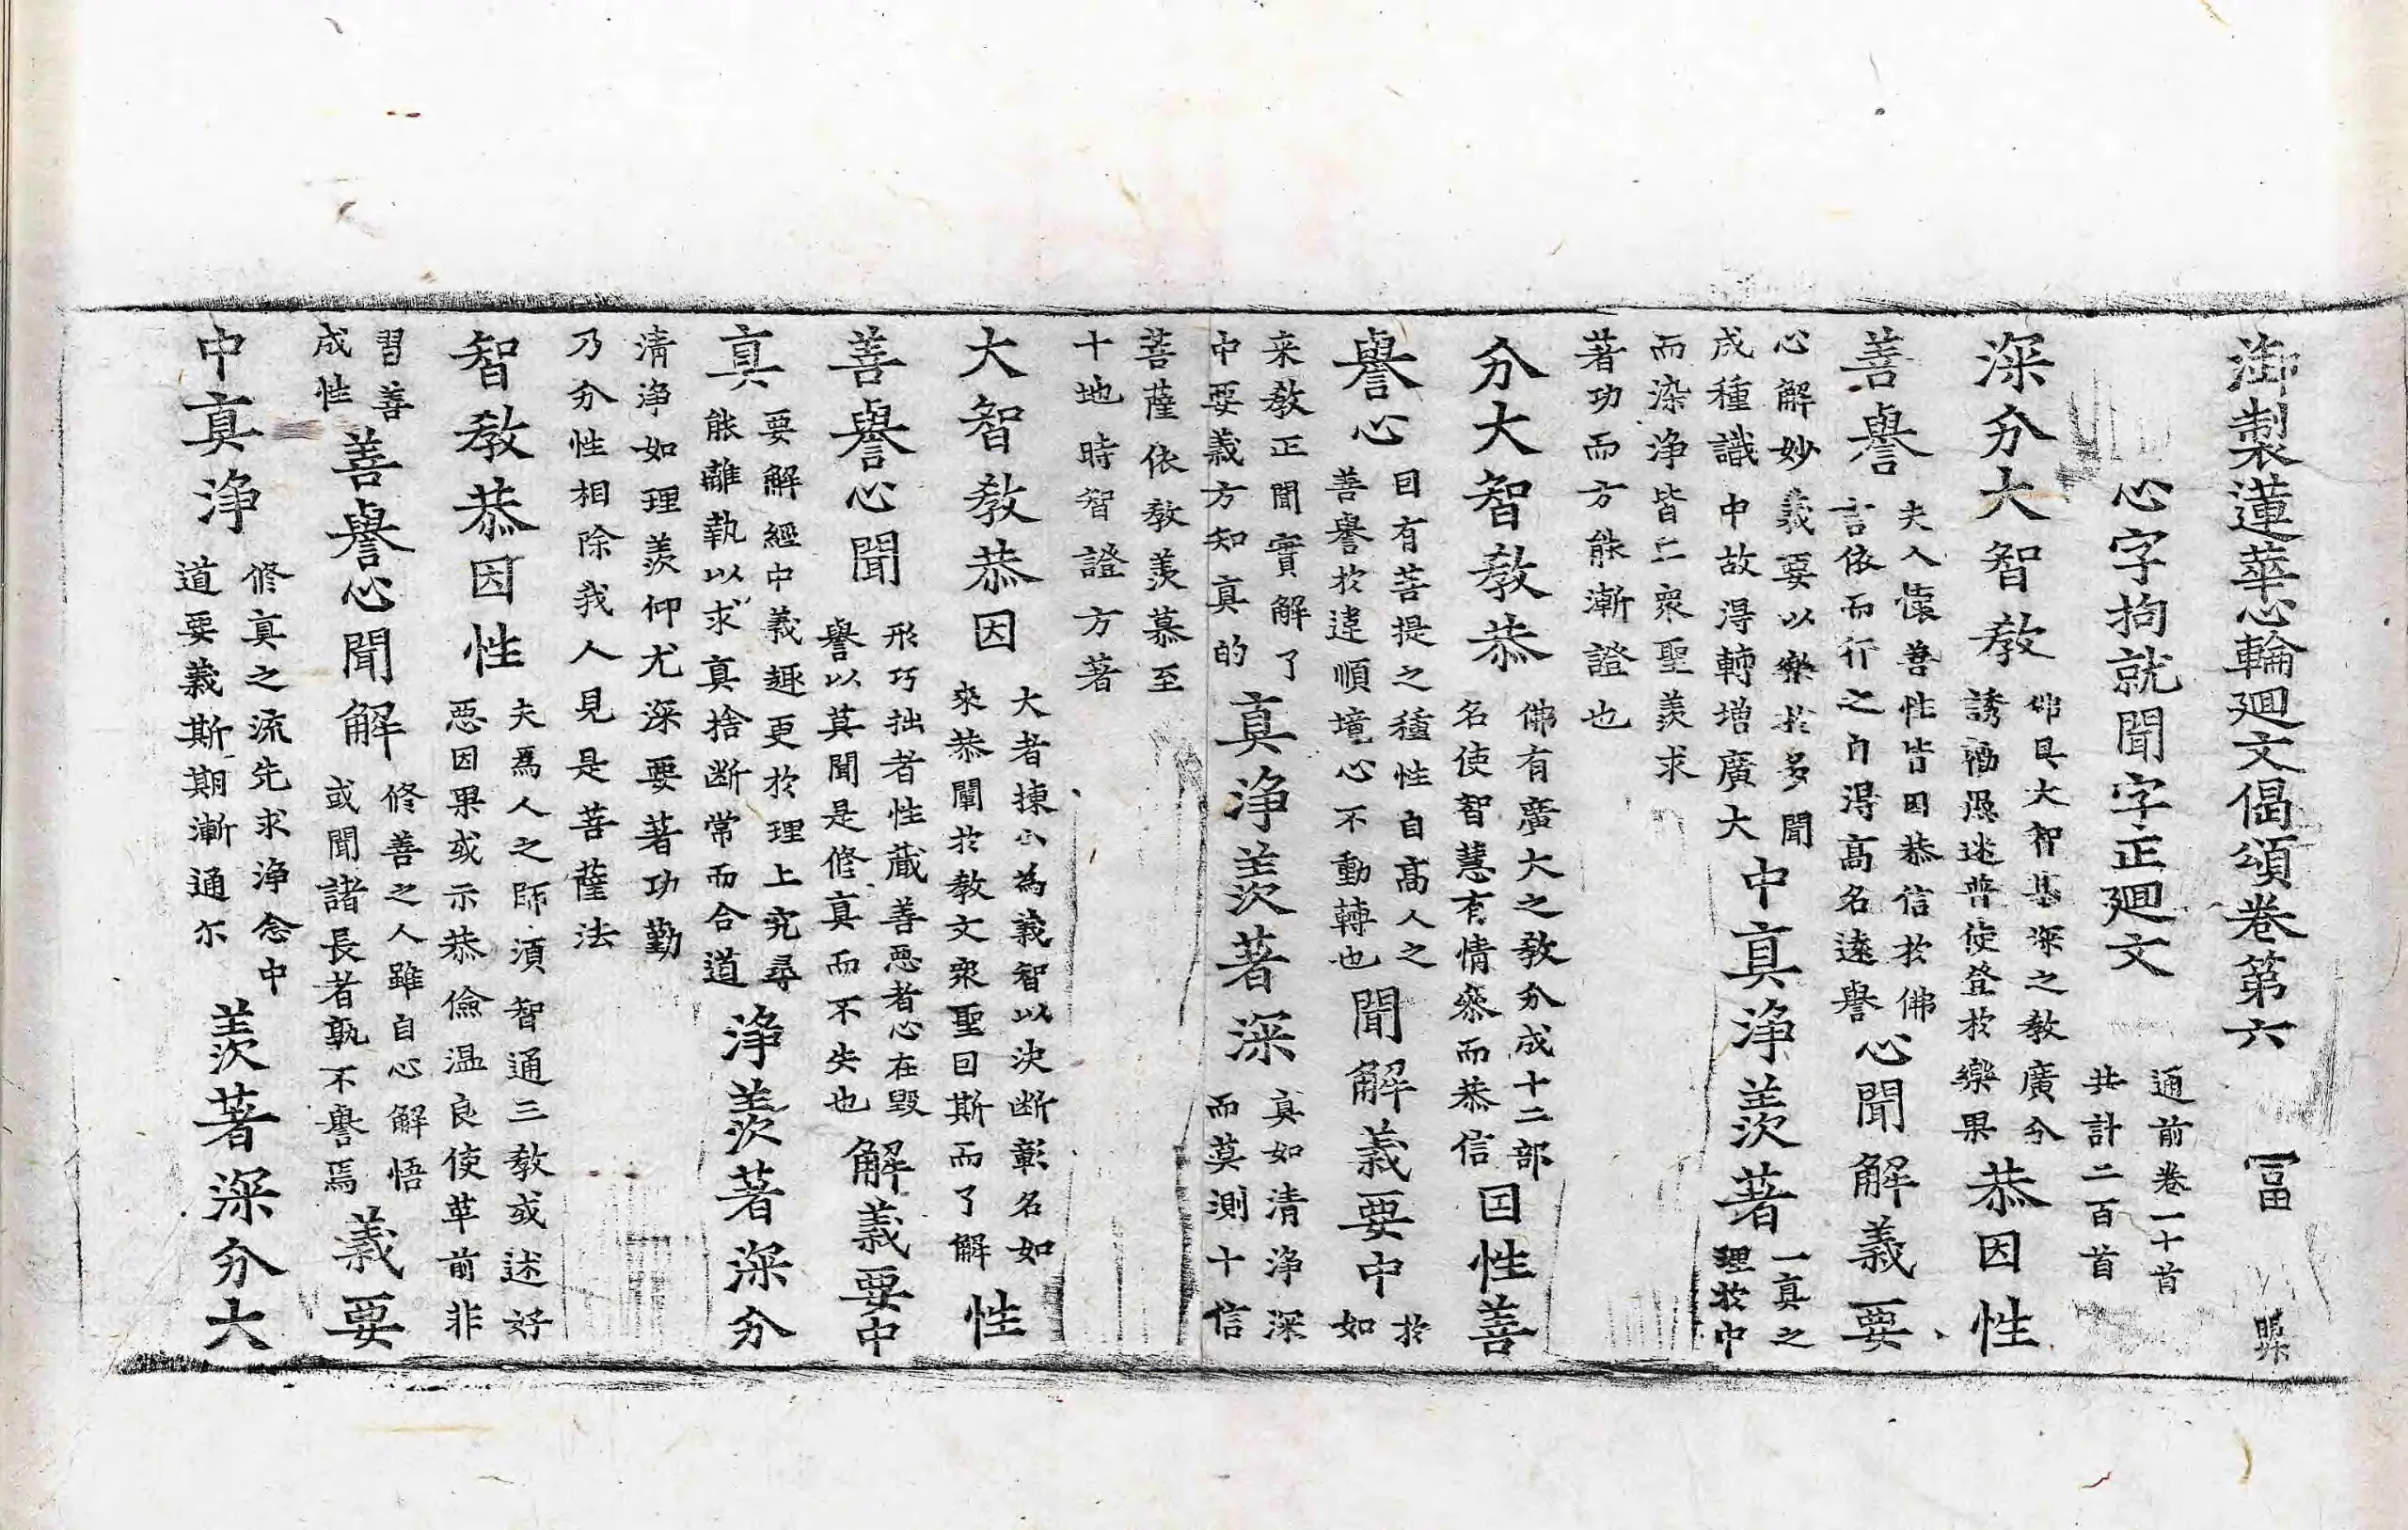 御製蓮華心輪廻文偈頌卷第六 冨
心字拘就聞字正廻文 通前卷一十首共計二百首
深分大智教 佛具大智甚深之教廣分誘勸愚迷普使登於樂果 恭因性
善譽 夫人懷善性皆因恭信於佛言依而行之自得高名遠譽 心聞解義要
心解妙義要以樂於多聞成種識中故得轉增廣大 中真淨羡著 一真之理於中
而染淨皆亡衆聖羨求著功而方能漸證也
分大智教恭 佛有廣大之教分成十二部名使智慧有情叅而恭信 因性善
譽心 因有菩提之種性自高人之善譽於違順境心不動轉也 聞解義要中 於如
来教正聞實解了中要義方知真的 真淨羡著深 真如清淨深而莫測十信
菩薩依教羨慕至十地時智證方著
大智教恭因 大者揀小為義智以決断彰名如來恭闡於教文衆聖因斯而了解 性
善譽心聞 形巧拙者性蔵善惡者心在毀譽以莫聞是修真而不失也 解義要中
真 要解經中義趣更於理上究尋能離執以求真捨断常而合道 淨羡著深分
清淨如理羨仰尤深要著功勤乃分性相除我人見是菩薩法
智教恭因性 夫為人之師須智通三教或述好惡因果或示恭儉温良使革前非
習善成性 善譽心聞解 修善之人雖自心解悟或聞諸長者孰不譽焉 義要
中真淨 修真之流先求淨念中道要義斯期漸通尔 羡著深分大